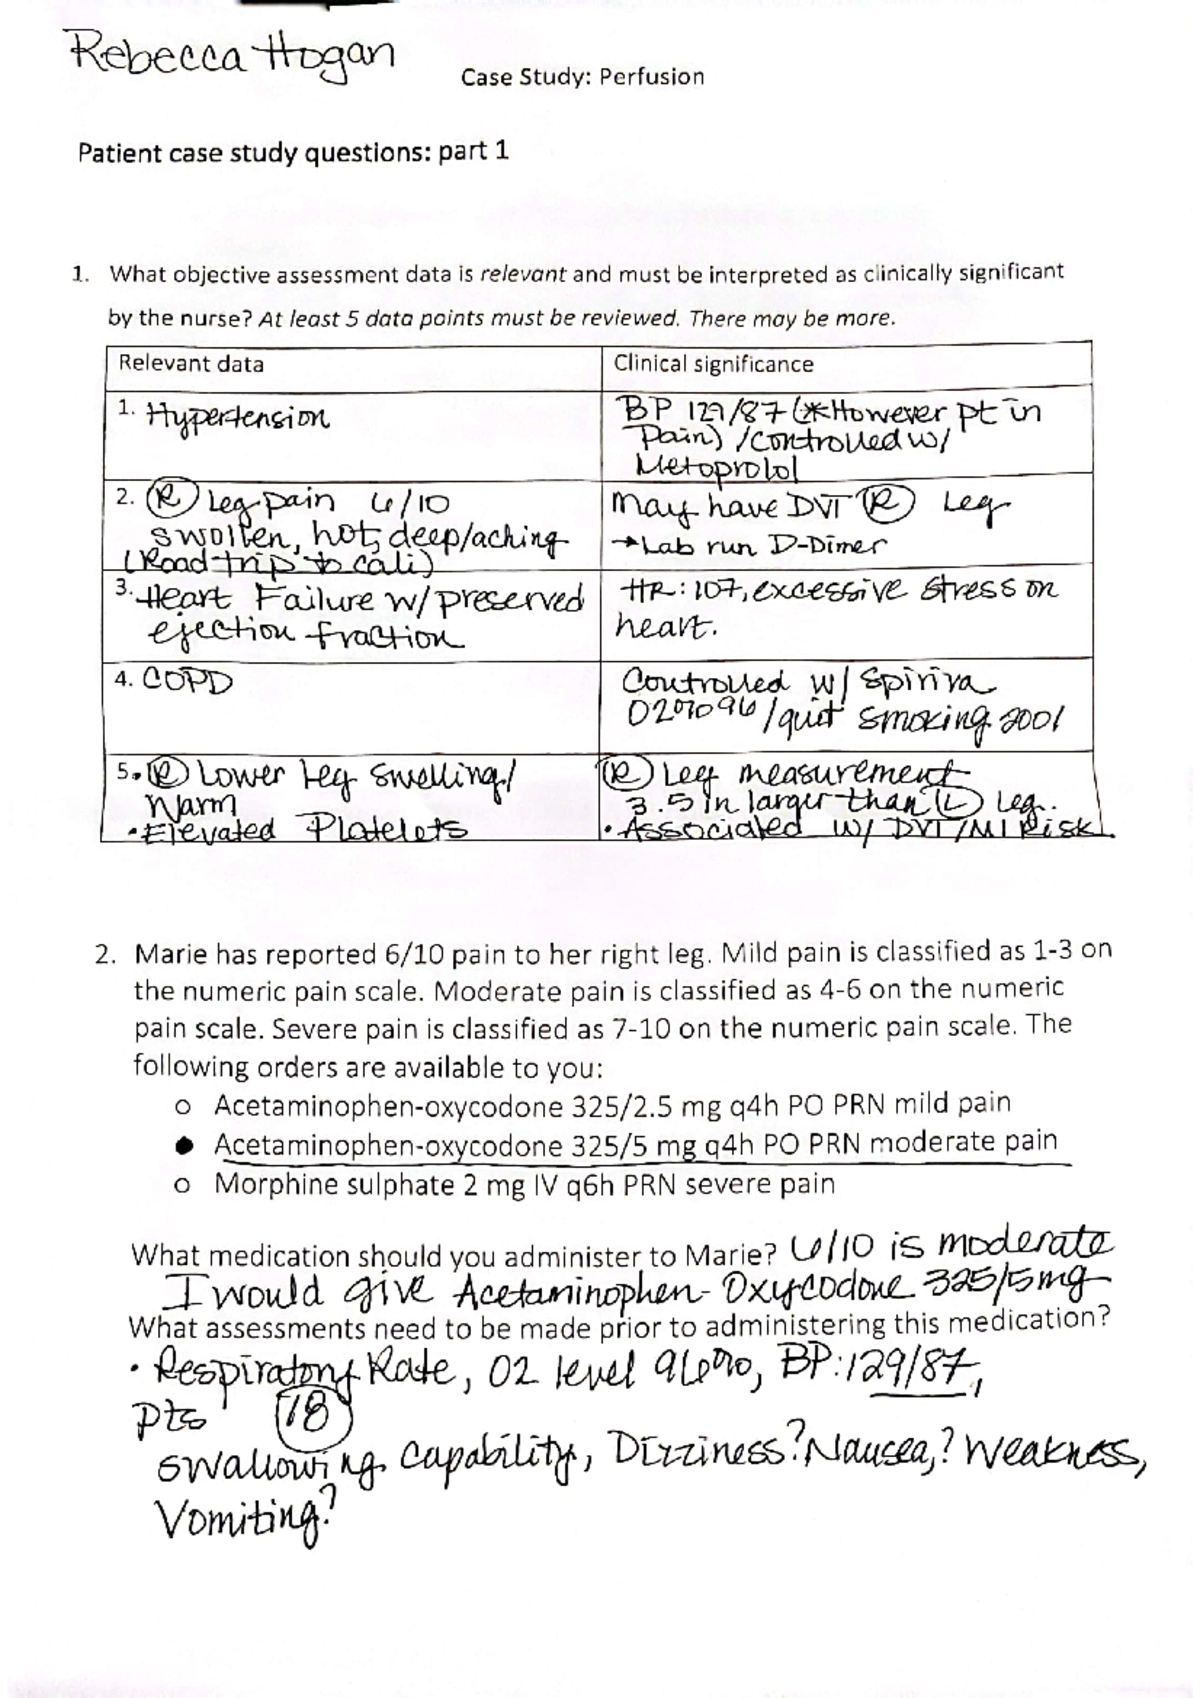 Rebecca Hogan
Case Study: Perfusion
Patient case study questions: part 1
1. What objective assessment data is relevant and must be interpreted as clinically significant
by the nurse? At least 5 data points must be reviewed. There may be more.
Relevant data
Clinical significance
1. Hypertension
BP 129/87 (*However pt in
Pain) /Controlled w/
Metoprolol
2. (R) Leg pain 6/10
swollen, hot, deep/aching
(Road trip to cali)
May have DVT (R) Leg
→Lab run D-Dimer
3. Heart Failure w/ preserved
ejection fraction
HR: 107, excessive stress on
heart.
4. COPD
Controlled w/ Spiriva
O2%96/quit smoking 2001
5. (R) Lower Leg Swelling/
Warm
•Elevated Platelets
(R) Leg measurement
3.5 in larger than (L) Leg.
•Associated w/ DVT/MI Risk.
2. Marie has reported 6/10 pain to her right leg. Mild pain is classified as 1-3 on
the numeric pain scale. Moderate pain is classified as 4-6 on the numeric
pain scale. Severe pain is classified as 7-10 on the numeric pain scale. The
following orders are available to you:
o Acetaminophen-oxycodone 325/2.5 mg q4h PO PRN mild pain
● Acetaminophen-oxycodone 325/5 mg q4h PO PRN moderate pain
o Morphine sulphate 2 mg IV q6h PRN severe pain
What medication should you administer to Marie? 6/10 is moderate
I would give Acetaminophen-Oxycodone 325/5mg
What assessments need to be made prior to administering this medication?
• Respiratory Rate, O2 level 96%, BP: 129/87,
pts (18)
swallowing capability, Dizziness? Nausea,? Weakness,
Vomiting?